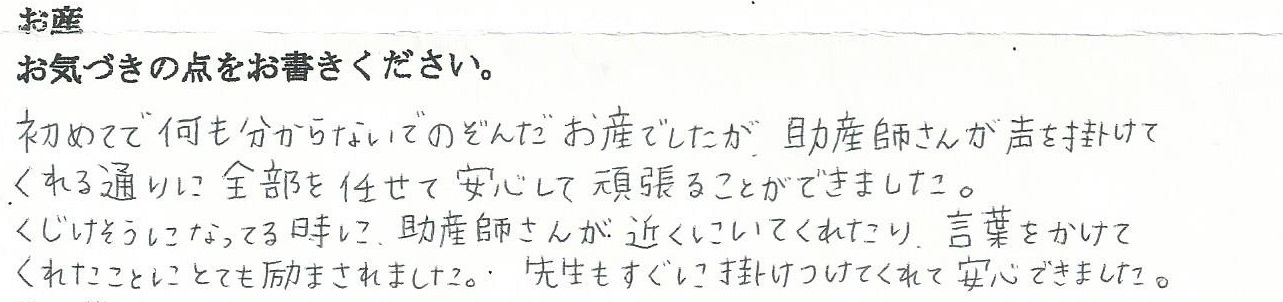 お産
お気づきの点をお書きください。
初めてで何も分からないでのぞんだお産でしたが、助産師さんが声を掛けて
くれる通りに全部を任せて安心して頑張ることができました。
くじけそうになってる時に、助産師さんが近くにいてくれたり、言葉をかけて
くれたことにとても励まされました。先生もすぐに掛けつけてくれて安心できました。